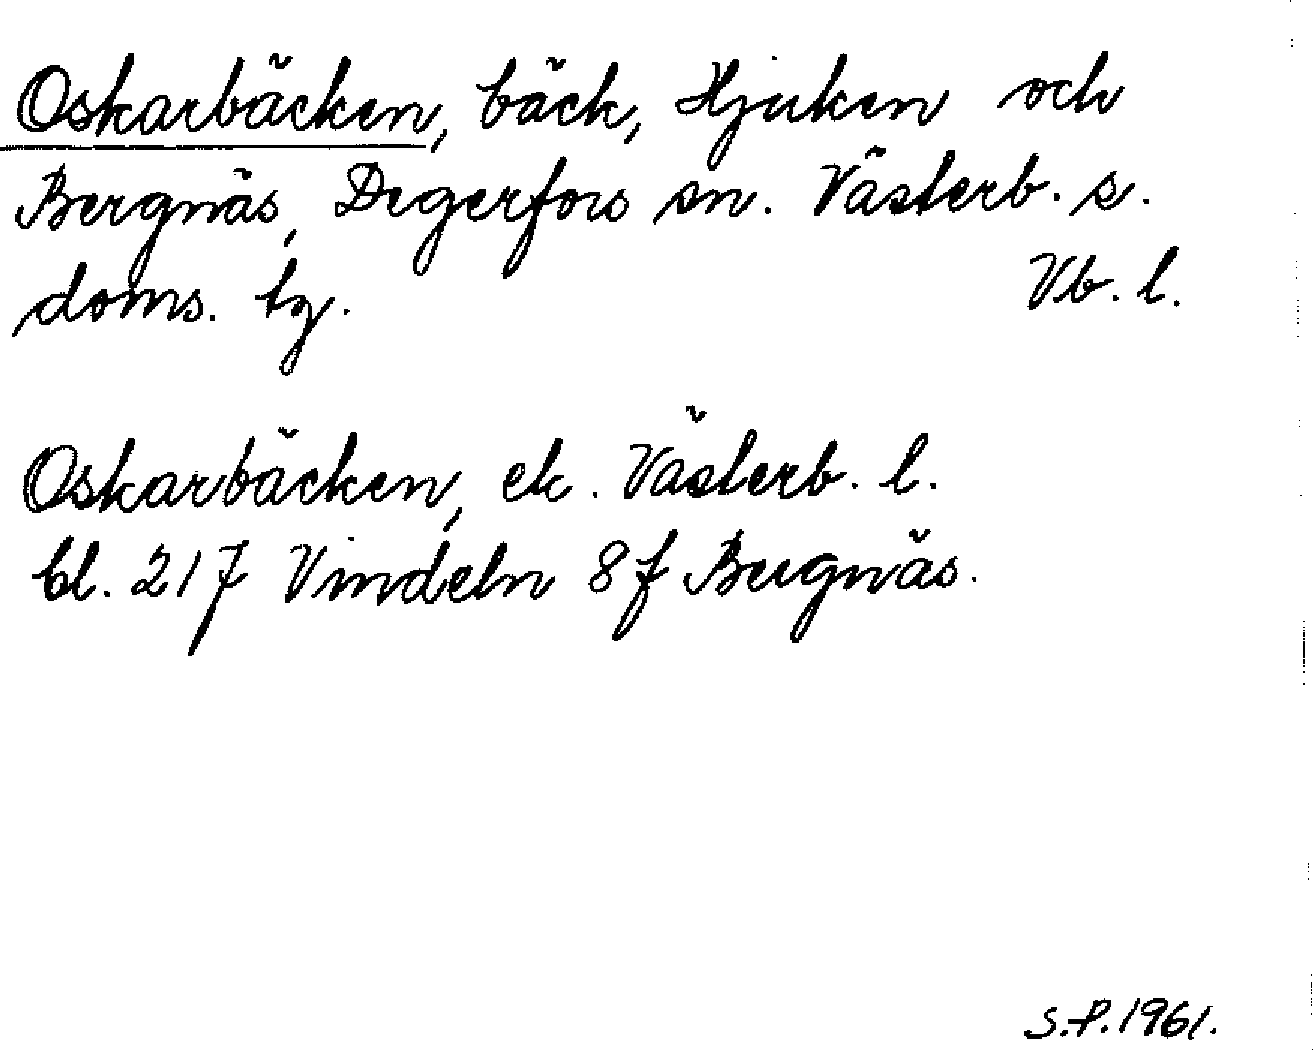 Oskarbäcken, bäck, Hjuken och
Bergnäs, Degerfors sn. Västerb. s.
doms. tg. Vb. l.
Oskarbäcken, ek. Västerb. l.
bl. 217 Vindeln 8f Bergnäs.
S.P. 1961.